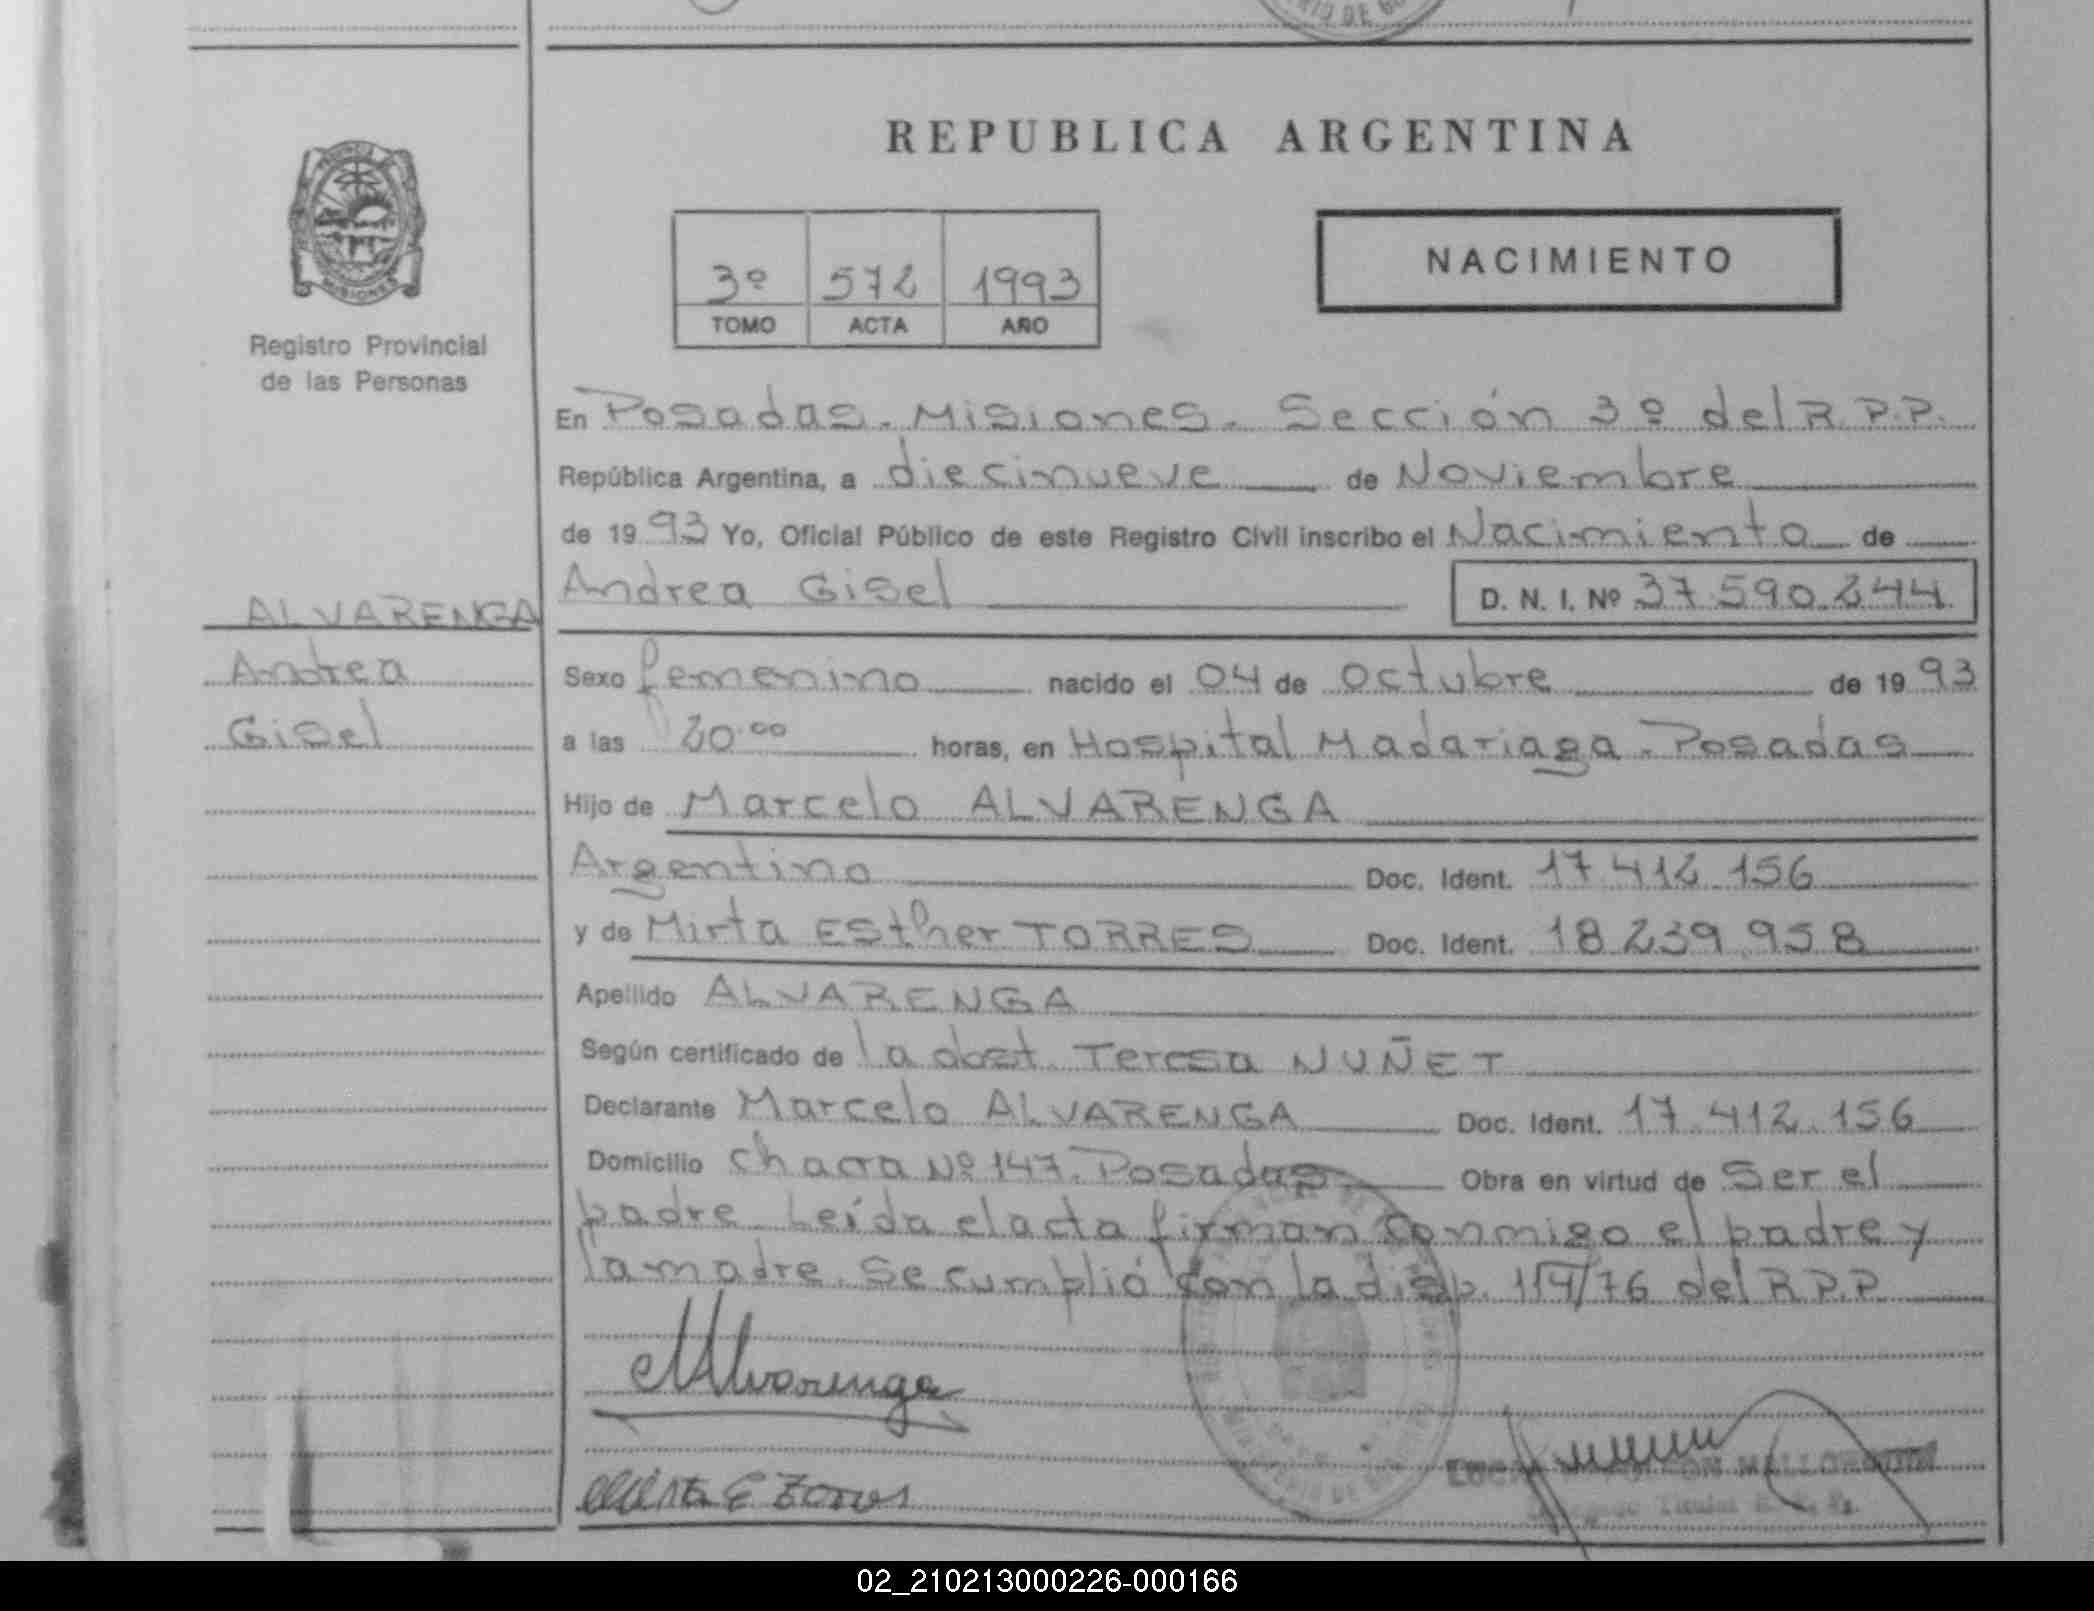 REPUBLICA ARGENTINA
MISIONES
Registro Provincial
de las Personas
3º 572 1993
TOMO ACTA AÑO
NACIMIENTO
En Posadas. Misiones. Sección 3º del R.P.P.
República Argentina, a diecinueve de Noviembre
de 1993 Yo, Oficial Público de este Registro Civil inscribo el Nacimiento de
Andrea Gisel D. N. I. Nº 37.590.244
ALVARENGA
Andrea
Gisel
Sexo femenino nacido el 04 de octubre de 1993
a las 20.00 horas, en Hospital Madariaga. Posadas
Hijo de Marcelo ALVARENGA
Argentino Doc. Ident. 17.412.156
y de Mirta Esther TORRES Doc. Ident. 18.239.958
Apellido ALVARENGA
Según certificado de la obst. Teresa NUÑET
Declarante Marcelo ALVARENGA Doc. Ident. 17.412.156
Domicilio chacra Nº 147. Posadas Obra en virtud de ser el
padre. Leída el acta firman conmigo el padre y
la madre. Se cumplió con la disp. 114/76 del R.P.P.
MAlvarenga
Mirta E Torres
MALLORQUIN
Titular
02_210213000226-000166